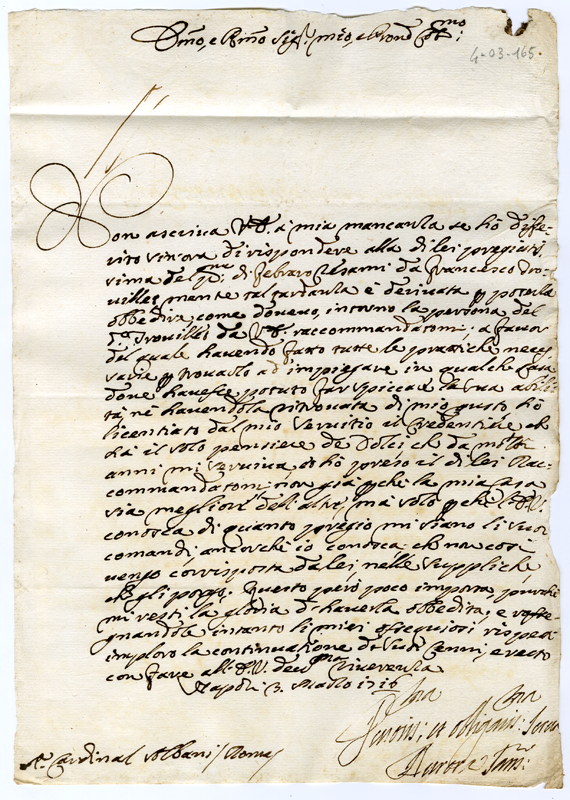 Emo, e Rmo Sigr. mio, e Prone
4-03-165.
Non ascriva V.E. à mia mancanza se hò diffe-
rito sin'ora di rispondere alla di lei pregiatis-
sima de di Febraro resami da Francesco Tro-
villes, mentre tal tardanza è derivata p poterla
obbedire come dovevo, intorno la persona del
do Trovilles da V.E. raccommandatomi; a favor
del quale havendo fatto tutte le pratiche neces-
sarie p trovarlo ad impiegare in qualche Casa
dove havesse potuto far spiccare la sua abili-
tà, nè havendola ritrovata di mio gusto, hò
licentiato dal mio servitio il Credentiere che
hà il solo pensiere de Dolci che da molti
anni mi serviva, et hò preso il di lei Rac-
commandatomi, non già pche la mia Casa
sia megliore dell'altre, mà solo pche l'E.V.
conosca di quanto pregio mi siano li suoi
comandi, ancorche io conosca che non così
vengo corrisposta da lei, nelle suppliche
che gli porgo. Questo però poco importa, purche
mi resti la gloria d'haverla obbedita, e rasse-
gnandole intanto li miei ossequiosi rispetti
imploro la continuatione de suoi Cenni, e resto
con fare all'E.V. Riverenza
Napoli 3. Marzo 1716
et obligma: Serva
Aurora
Sr. Cardinal Albani / Roma /